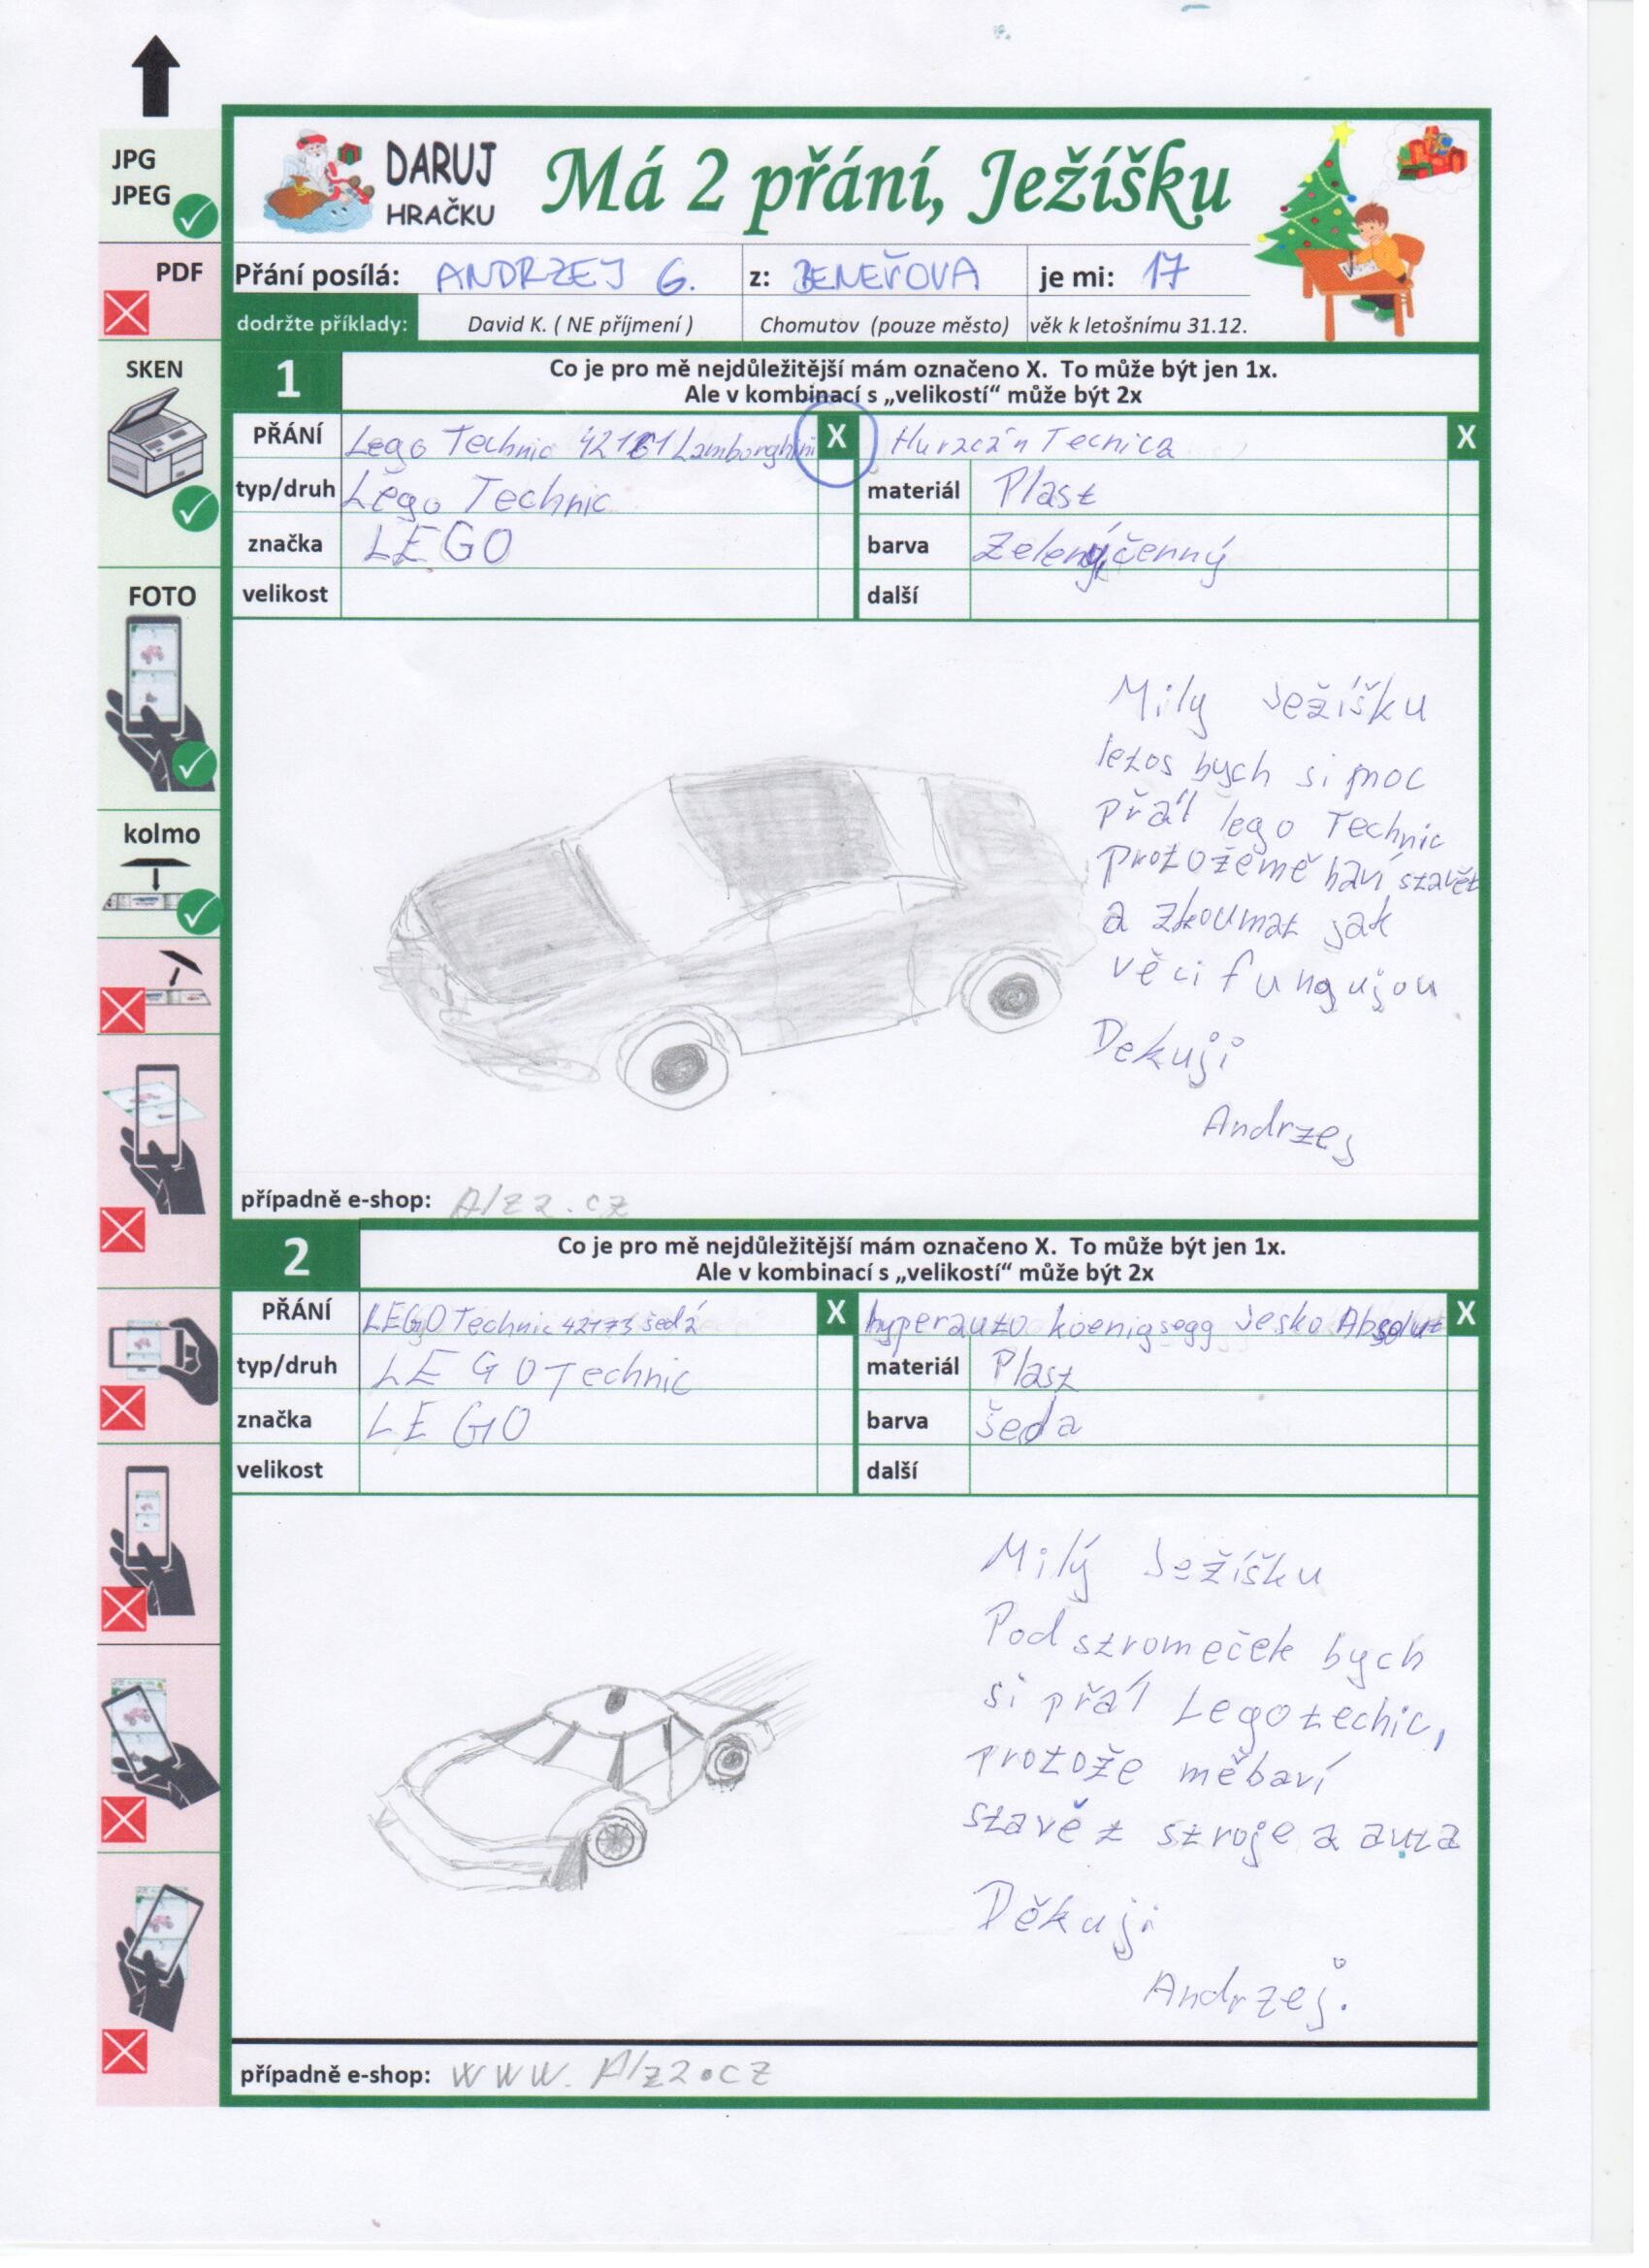 JPG
JPEG
PDF
SKEN
FOTO
kolmo
DARUJ
HRAČKU
Má 2 přání, Ježíšku
Přání posílá: ANDRZEJ G. z: BENEŠOVA je mi: 17
dodržte příklady: David K. ( NE příjmení ) Chomutov (pouze město) věk k letošnímu 31.12.
1 Co je pro mě nejdůležitější mám označeno X. To může být jen 1x.
Ale v kombinací s „velikostí“ může být 2x
PŘÁNÍ Lego Technic 42161 Lamborghini X Huracán Tecnica X
typ/druh Lego Technic materiál Plast
značka LEGO barva Zelený, černný
velikost další
Mily Ježíšku
letos bych si moc
přál lego Technic
protožemě baví stavět
a zkoumat jak
věci fungujou
Dekuji
Andrzej
případně e-shop: Alza.cz
2 Co je pro mě nejdůležitější mám označeno X. To může být jen 1x.
Ale v kombinací s „velikostí“ může být 2x
PŘÁNÍ LEGO Technic 42173 šedá X hyperauto koenigsegg Jesko Absolut X
typ/druh LEGO Technic materiál Plast
značka LEGO barva šeda
velikost další
Milý Ježíšku
Pod stromeček bych
si přál Legotechic,
protože měbaví
stavět stroje a auta
Děkuji
Andrzej.
případně e-shop: www. Alza.cz